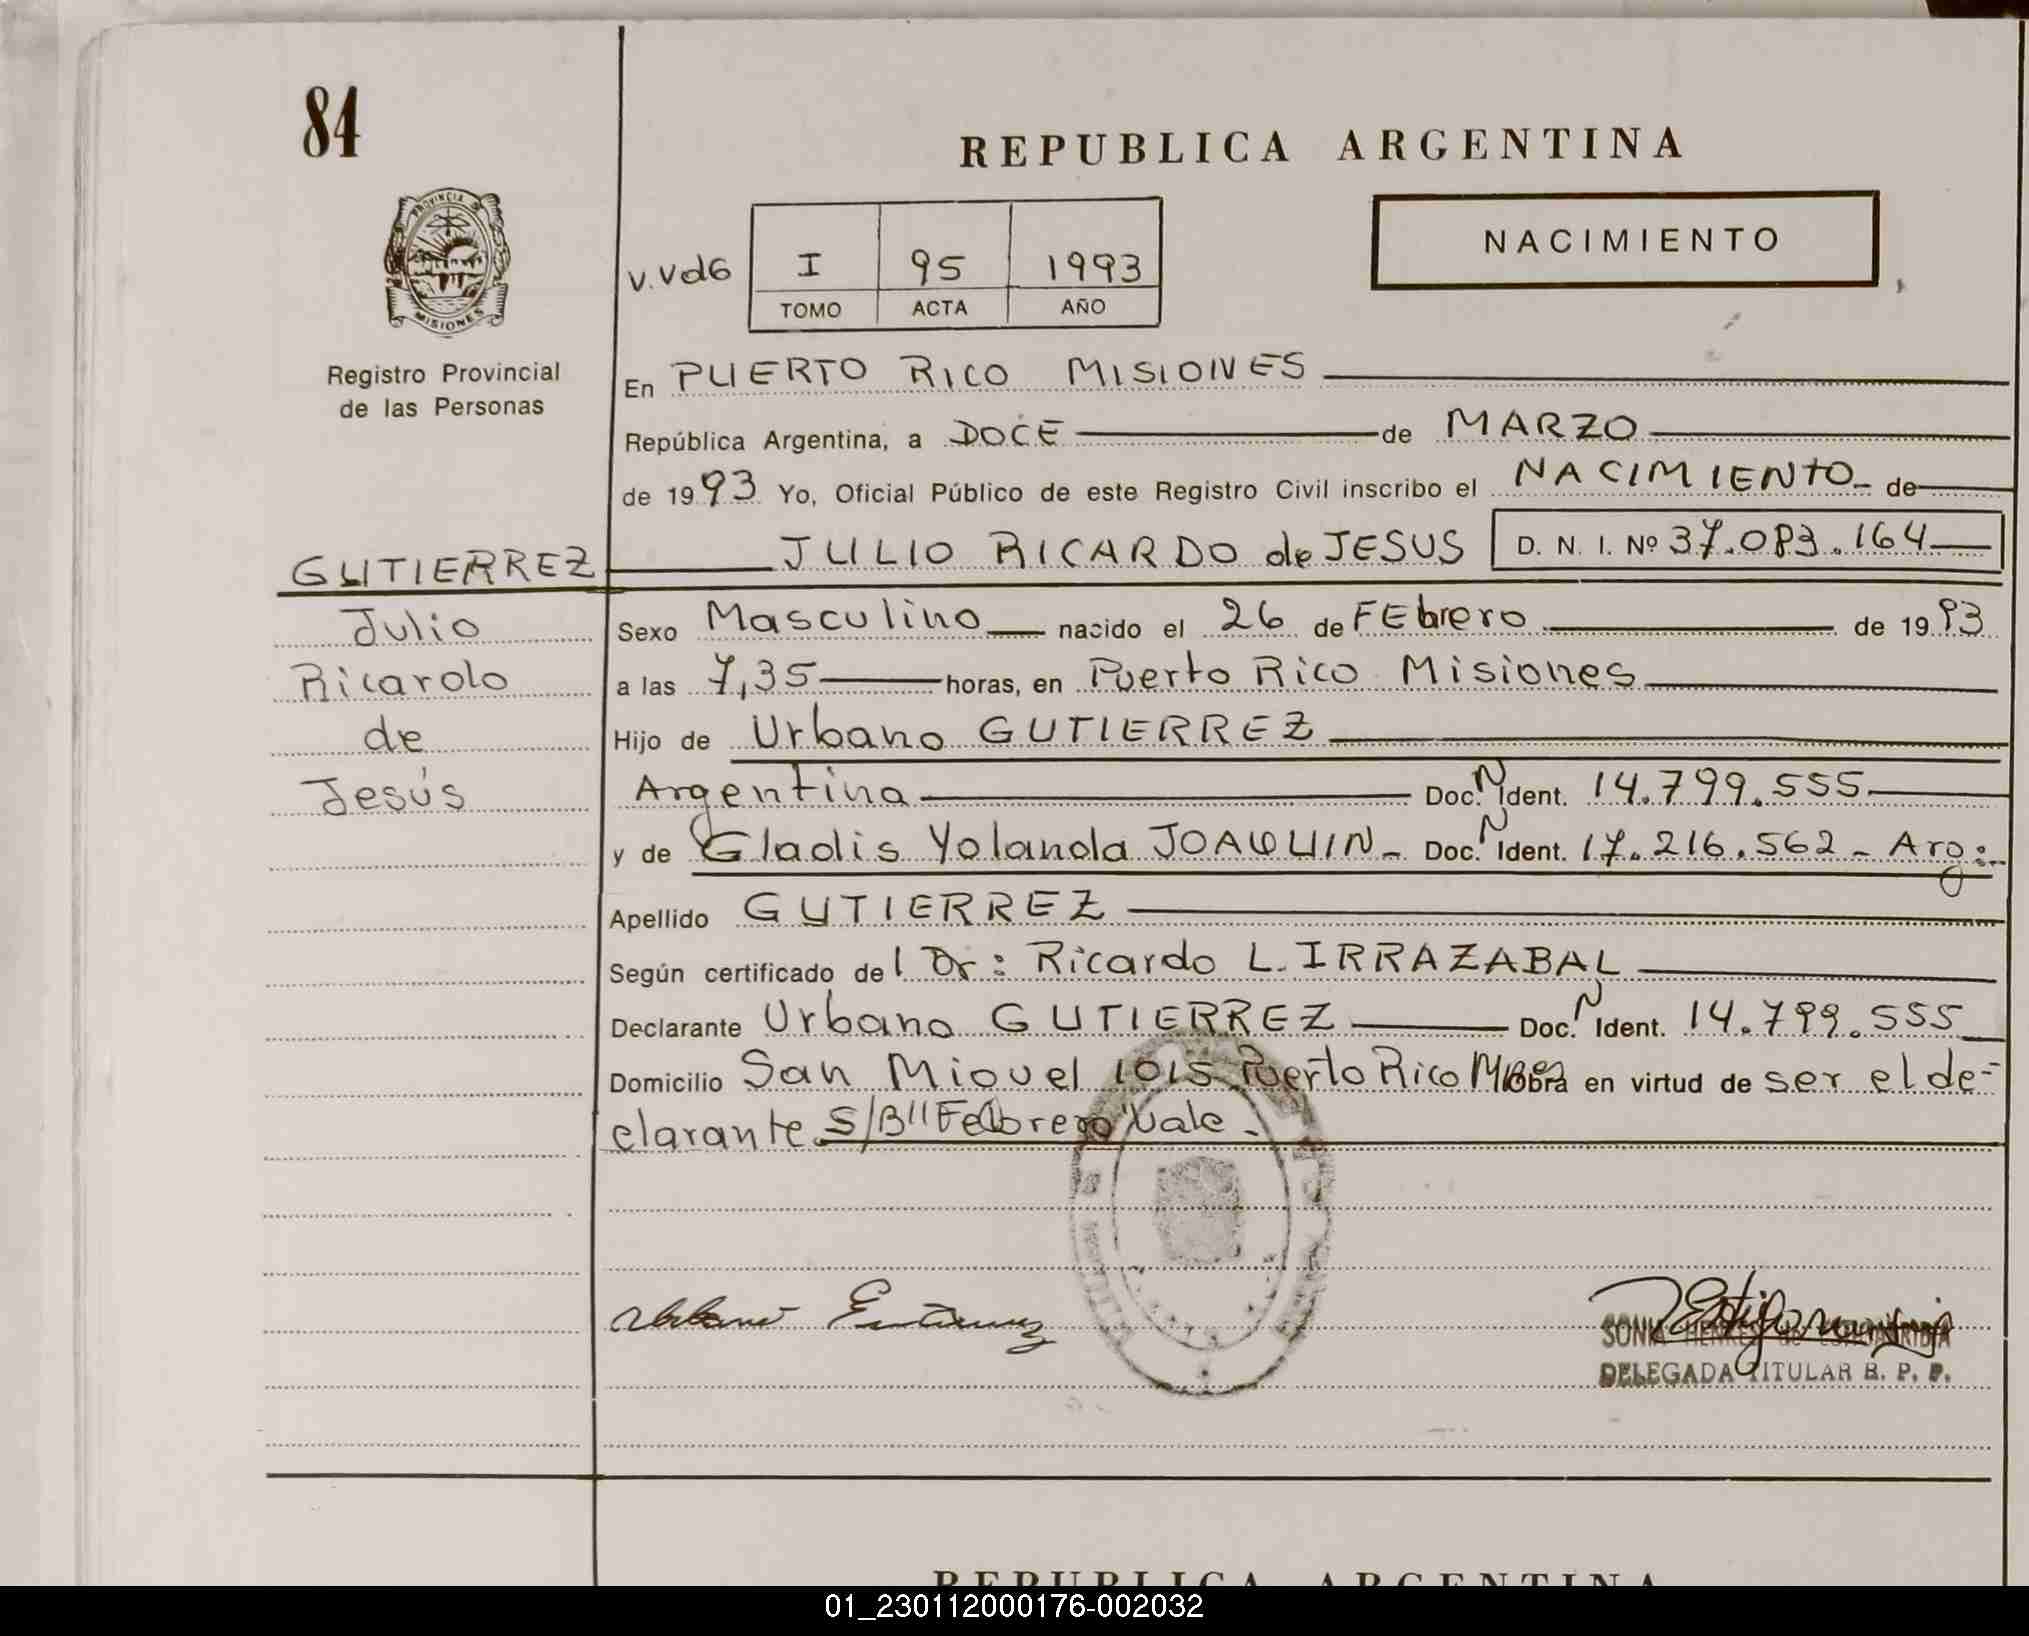 84
REPUBLICA ARGENTINA
PROVINCIA D
MISIONES
Registro Provincial
de las Personas
V.Vd6 I 95 1993
TOMO ACTA AÑO
NACIMIENTO
En PUERTO RICO MISIONES
República Argentina, a DOCE de MARZO
de 1993 Yo, Oficial Público de este Registro Civil inscribo el NACIMIENTO de
GUTIERREZ JULIO RICARDO de JESUS D. N. I. Nº 37.083.164
Julio
Ricardo
de
Jesús
Sexo Masculino nacido el 26 de FEbrero de 1993
a las 7,35 horas, en Puerto Rico Misiones
Hijo de Urbano GUTIERREZ
Argentina Doc. N Ident. 14.799.555
y de Gladis Yolanda JOAQUIN - Doc. N Ident. 17.216.562 - Arg:
Apellido GUTIERREZ
Según certificado del Dr: Ricardo L. IRRAZABAL
Declarante Urbano GUTIERREZ Doc. N Ident. 14.799.555
Domicilio San Miguel 1015 Puerto Rico Obra en virtud de ser el de-
clarante S/B "Febrero" Vale.
Urbano Gutierrez
SONIA
DELEGADA TITULAR R. P. P.
REPUBLICA ARGENTINA
01_230112000176-002032